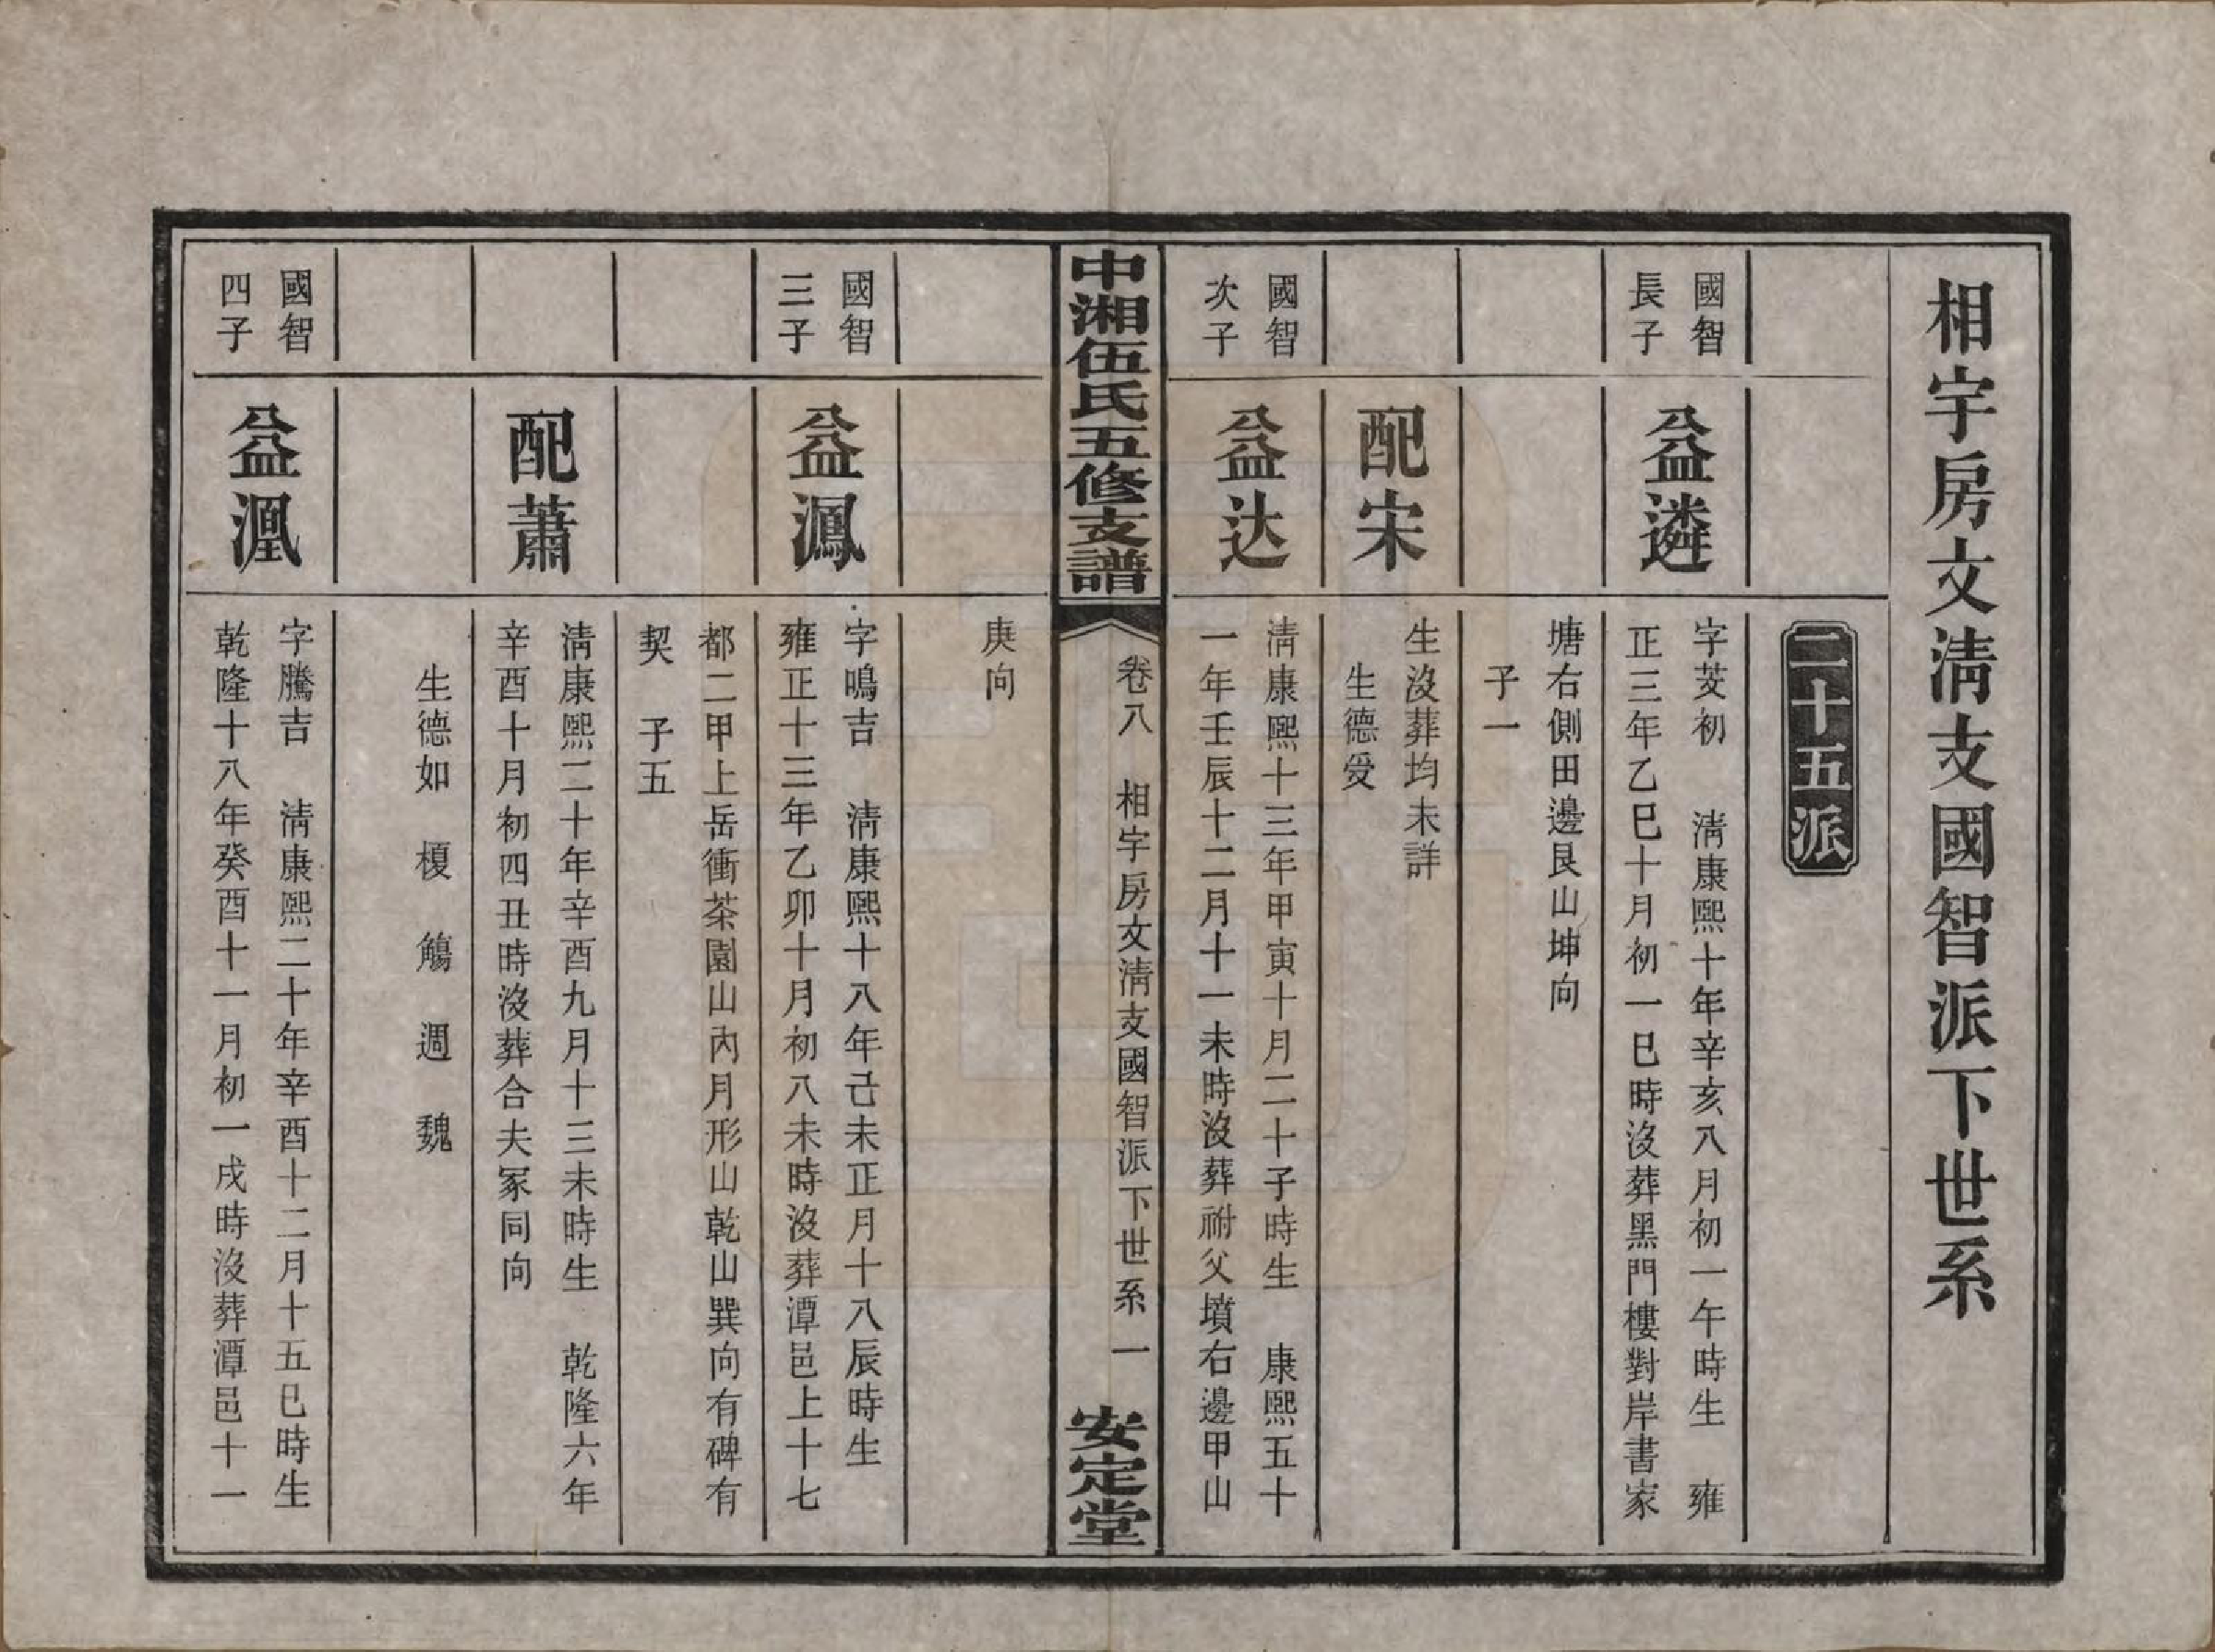 相宇房文淸支國智派下世系
二十五派
國智
長子
益遴
字芨初 淸康熙十年辛亥八月初一午時生 雍
正三年乙巳十月初一巳時沒葬黑門樓對岸書家
塘右側田邊艮山坤向
子一
配宋
生沒葬均未詳
生德爱
國智
次子
益达
淸康熙十三年甲寅十月二十子時生 康熙五十
一年壬辰十二月十一未時沒葬祔父墳右邊甲山
中湘伍氏五修支譜
卷八 相宇房文淸支國智派下世系 一
安定堂
庚向
國智
三子
益鳳
字鳴吉 淸康熙十八年己未正月十八辰時生
雍正十三年乙卯十月初八未時沒葬潭邑上十七
都二甲上岳衝茶園山內月形山乾山巽向有碑有
契 子五
配蕭
淸康熙二十年辛酉九月十三未時生 乾隆六年
辛酉十月初四丑時沒葬合夫冢同向
生德如 榎 觴 週 魏
國智
四子
益湦
字騰吉 淸康熙二十年辛酉十二月十五巳時生
乾隆十八年癸酉十一月初一戌時沒葬潭邑十一